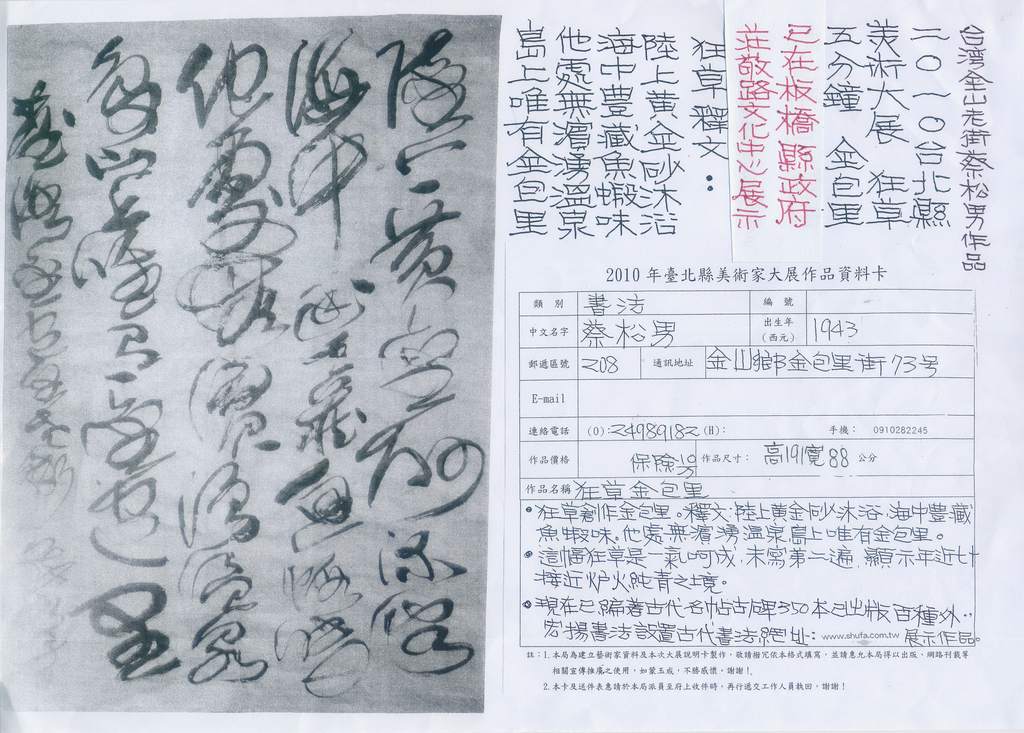 台湾金山老街蔡松男作品
二〇一〇台北縣
美術大展 狂草
五分鐘 金包里
已在板橋縣政府
莊敬路文化中心展示
狂草釋文：
陸上黃金砂沐浴
海中豐藏魚蝦味
他處無濱湧溫泉
島上唯有金包里
2010 年臺北縣美術家大展作品資料卡
類別 書法 編號
中文名字 蔡松男 出生年(西元) 1943
郵遞區號 208 通訊地址 金山鄉金包里街73号
E-mail
連絡電話 (O):24989182 (H): 手機： 0910282245
作品價格 保險労 作品尺寸： 高191寬88 公分
作品名稱 狂草金包里
•狂草創作金包里。釋文：陸上黃金砂沐浴.海中豐藏
魚蝦味.他處無濱湧溫泉島上唯有金包里。
•這幅狂草是一氣呵成，未寫第二遍，顯示年近七十
接近炉火純青之境。
•現在已編著古代名帖古碑350本已出版百種外..
宏揚書法設置古代書法網址：www.shufa.com.tw 展示作品。
註：1.本局為建立藝術家資料及本次大展說明卡製作，敬請撥冗依本格式填寫，並請惠允本局得以出版、網路刊載等
相關宣傳推廣之使用，如蒙玉成，不勝感懷，謝謝！.
2.本卡及送件表惠請於本局派員至府上收件時，再行遞交工作人員執回，謝謝！